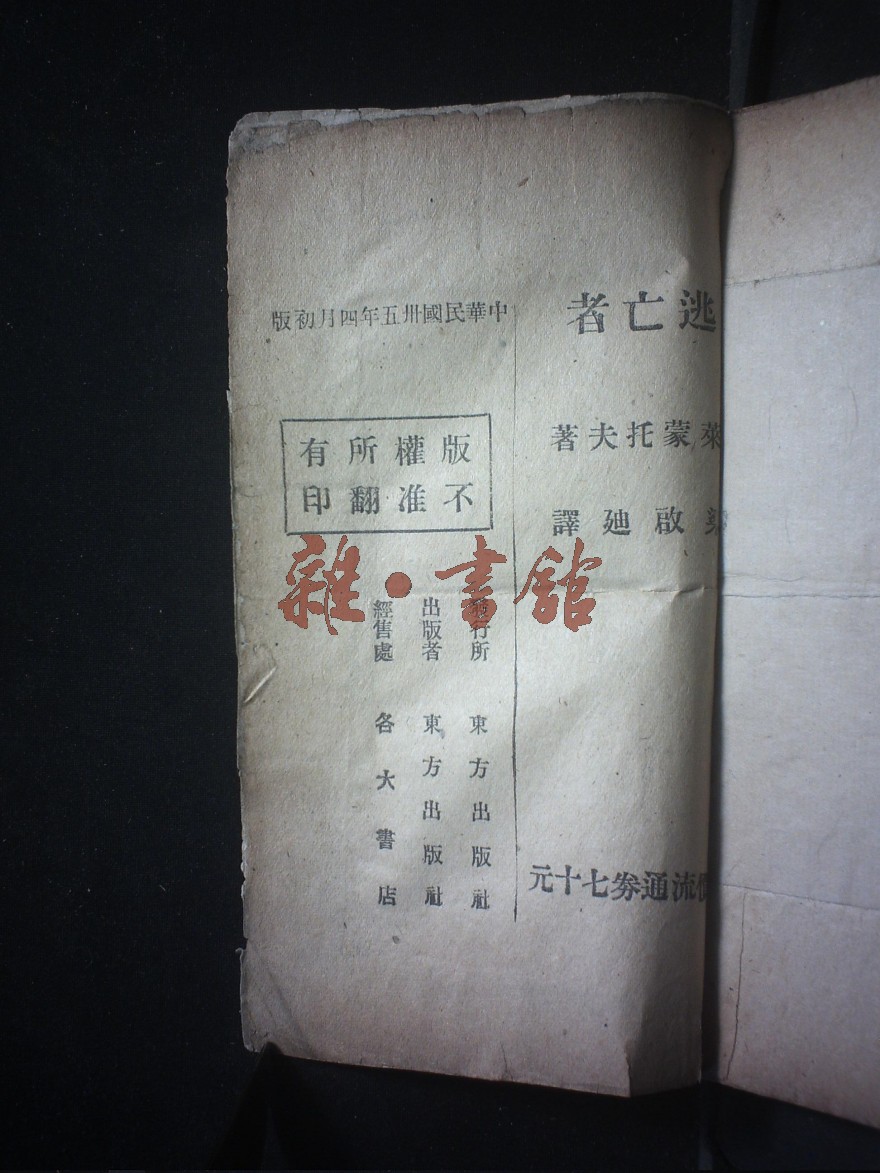 逃亡者
萊蒙托夫著
啟廸譯
流通劵七十元
中華民國卅五年四月初版
版權所有
不准翻印
發行所 東方出版社
出版者 東方出版社
經售處 各大書店
雜·書館